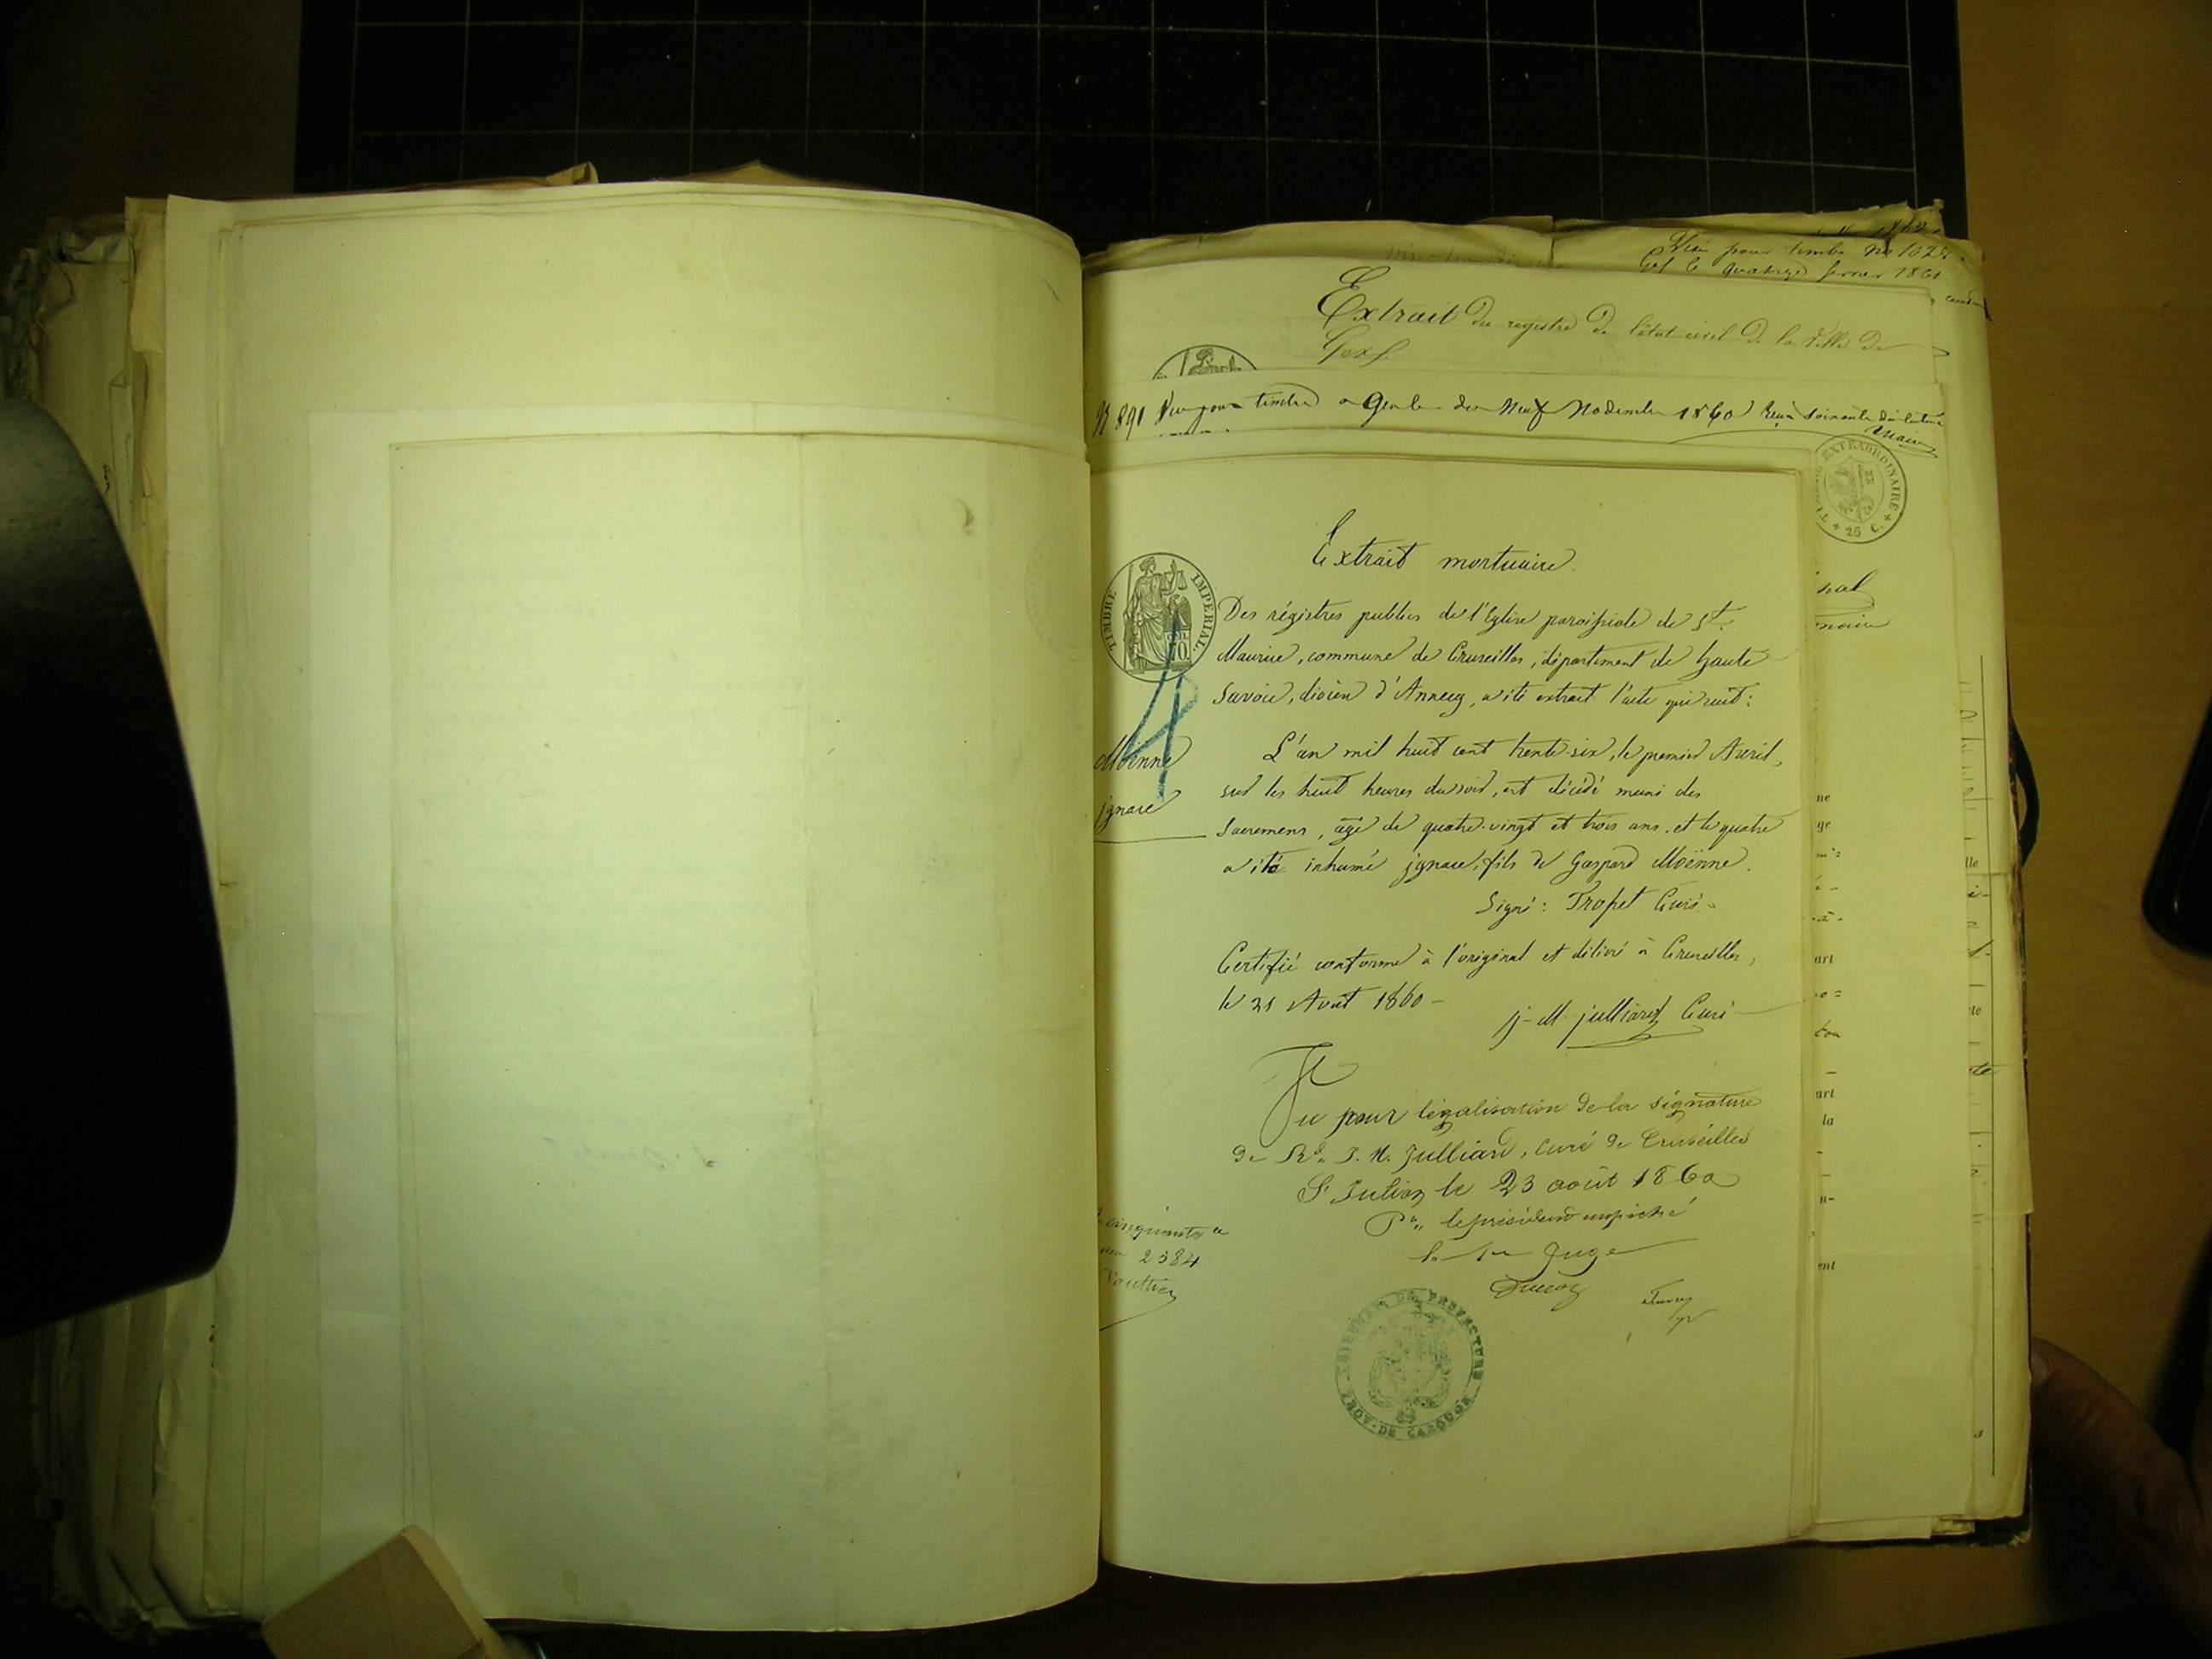 Visé pour timbre No 102
Gex le quatorze fevrier 1861
Extrait du registre de l'état civil de la ville de
Gex.
No 891 Vu pour timbre a Genève du Neuf Novembre 1860 Reçu soixante dix centimes
TIMBRE EXTRAORDINAIRE
25 C.
Extrait mortuaire.
TIMBRE IMPERIAL
Des régistres publics de l'Eglise paroissiale de St.
Maurice, commune de Cruseilles, département de haute
Savoie, diocèse d'Annecy, a été extrait l'acte qui suit:
Moënne
jgnace
L'an mil huit cent trente-six, le premier Avril,
sur les huit heures du soir, est décédé muni des
Sacremens, âgé de quatre-vingt et trois ans, et le quatre
a été inhumé jgnace, fils de Gaspard Moënne.
Signé: Trofet Curé.
Certifié conforme à l'original et délivré à Cruseilles,
le 21 Août 1860 -
j-M julliard Curé
Vu pour légalisation de la signature
de Rd. J. M. Julliard, curé de Cruseilles
St Julien le 23 août 1860
Pr. le président empêché
le 1er Juge
cinquante c
2384
TRIBUNAL DE PREFECTURE
PROV. DE CAROUGE